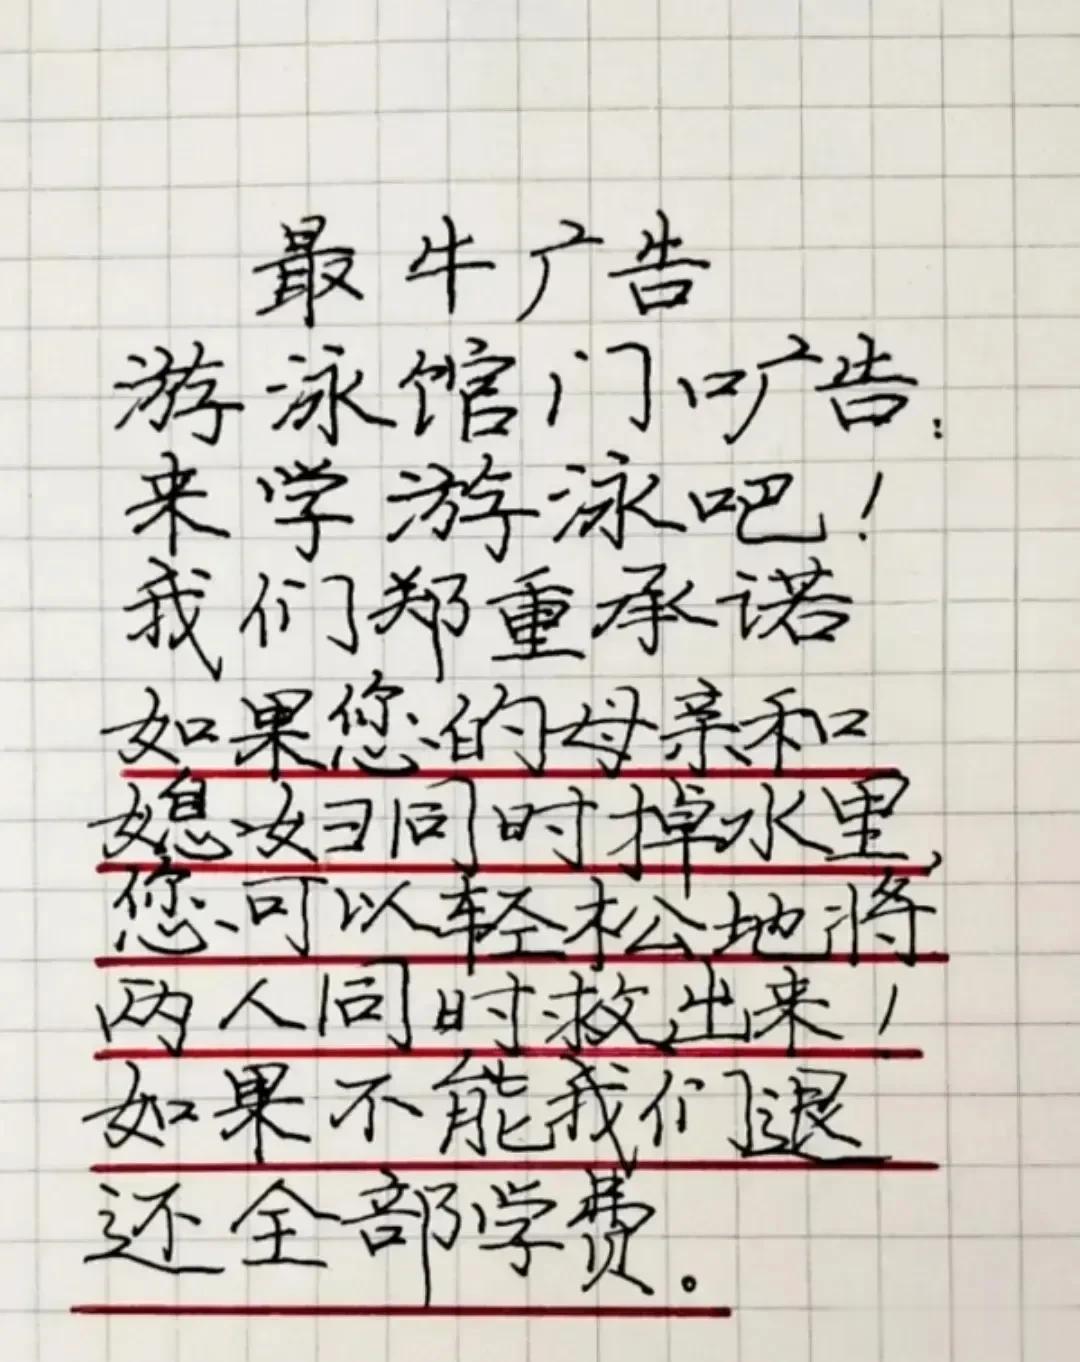 最牛广告
游泳馆门口广告:
来学游泳吧!
我们郑重承诺
如果您的母亲和
媳妇同时掉水里,
您可以轻松地将
两人同时救出来!
如果不能我们退
还全部学费。